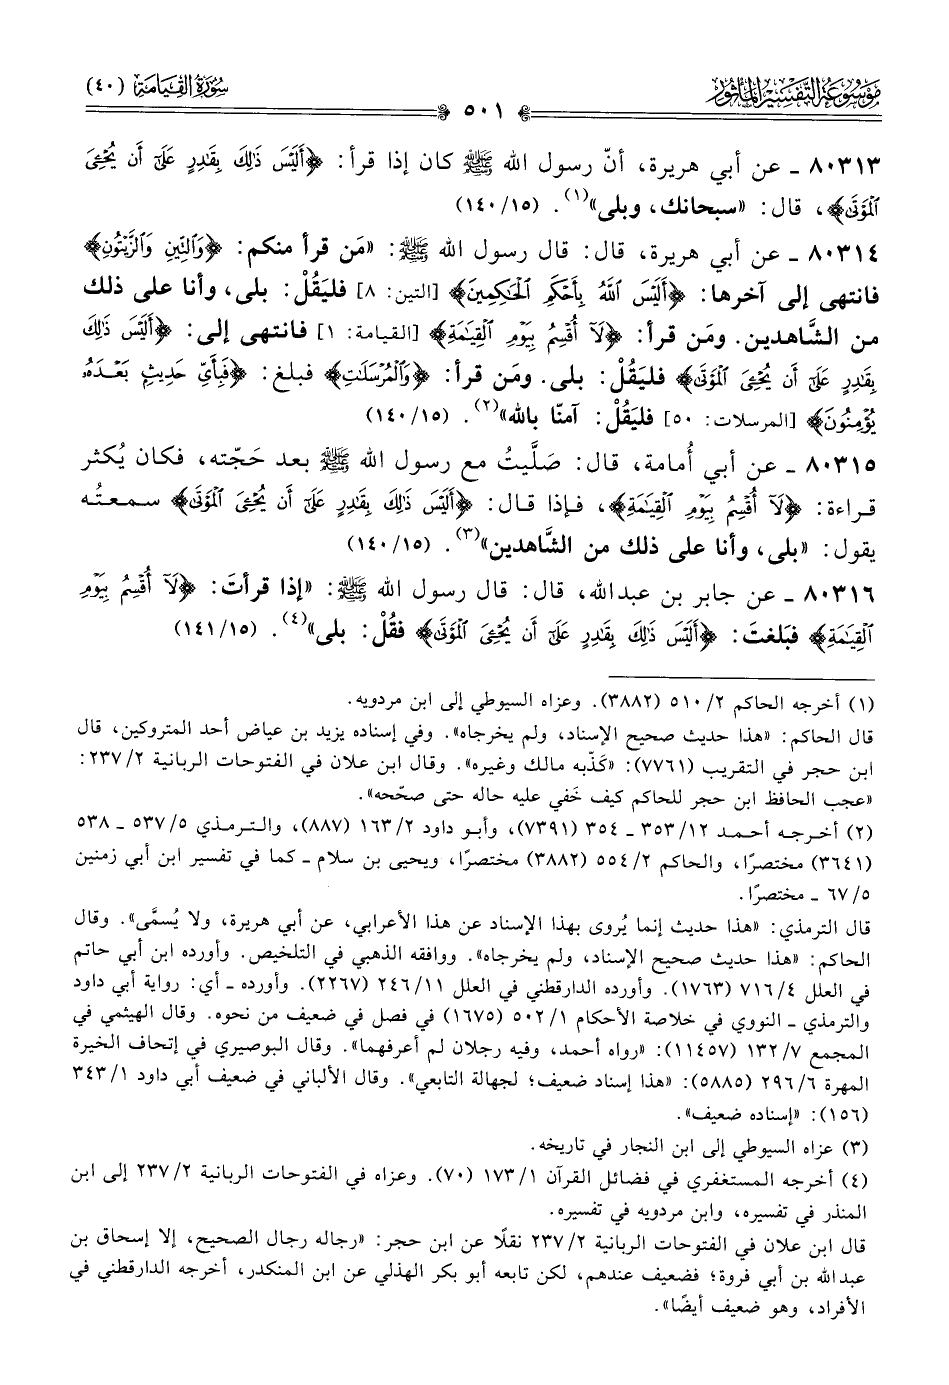 موسوعة التفسير المأثور
سورة القيامة (٤٠)
٥٠١
٨٠٣١٣ ـ عن أبي هريرة، أنّ رسول الله ﷺ كان إذا قرأ: ﴿أَلَيْسَ ذَٰلِكَ بِقَٰدِرٍ عَلَىٰٓ أَن يُحْـِۧيَ
ٱلْمَوْتَىٰ﴾، قال: «سبحانك، وبلى»(١). (١٥/ ١٤٠)
٨٠٣١٤ ـ عن أبي هريرة، قال: قال رسول الله ﷺ: «مَن قرأ منكم: ﴿وَٱلتِّينِ وَٱلزَّيْتُونِ﴾
فانتهى إلى آخرها: ﴿أَلَيْسَ ٱللَّهُ بِأَحْكَمِ ٱلْحَٰكِمِينَ﴾ [التين: ٨] فليَقُلْ: بلى، وأنا على ذلك
من الشَّاهدين. ومَن قرأ: ﴿لَآ أُقْسِمُ بِيَوْمِ ٱلْقِيَٰمَةِ﴾ [القيامة: ١] فانتهى إلى: ﴿أَلَيْسَ ذَٰلِكَ
بِقَٰدِرٍ عَلَىٰٓ أَن يُحْـِۧيَ ٱلْمَوْتَىٰ﴾ فليَقُلْ: بلى. ومَن قرأ: ﴿وَٱلْمُرْسَلَٰتِ﴾ فبلغ: ﴿فَبِأَيِّ حَدِيثٍۭ بَعْدَهُۥ
يُؤْمِنُونَ﴾ [المرسلات: ٥٠] فليَقُلْ: آمنّا بالله»(٢). (١٥/ ١٤٠)
٨٠٣١٥ ـ عن أبي أُمامة، قال: صَلَّيتُ مع رسول الله ﷺ بعد حَجّته، فكان يُكثر
قراءة: ﴿لَآ أُقْسِمُ بِيَوْمِ ٱلْقِيَٰمَةِ﴾، فإذا قال: ﴿أَلَيْسَ ذَٰلِكَ بِقَٰدِرٍ عَلَىٰٓ أَن يُحْـِۧيَ ٱلْمَوْتَىٰ﴾ سمعتُه
يقول: «بلى، وأنا على ذلك من الشَّاهدين»(٣). (١٥/ ١٤٠)
٨٠٣١٦ ـ عن جابر بن عبدالله، قال: قال رسول الله ﷺ: «إذا قرأتَ: ﴿لَآ أُقْسِمُ بِيَوْمِ
ٱلْقِيَٰمَةِ﴾ فبَلغتَ: ﴿أَلَيْسَ ذَٰلِكَ بِقَٰدِرٍ عَلَىٰٓ أَن يُحْـِۧيَ ٱلْمَوْتَىٰ﴾ فقُلْ: بلى»(٤). (١٥/ ١٤١)
(١) أخرجه الحاكم ٢/ ٥١٠ (٣٨٨٢). وعزاه السيوطي إلى ابن مردويه.
قال الحاكم: «هذا حديث صحيح الإسناد، ولم يخرجاه». وفي إسناده يزيد بن عياض أحد المتروكين، قال
ابن حجر في التقريب (٧٧٦١): «كَذّبه مالك وغيره». وقال ابن علان في الفتوحات الربانية ٢/ ٢٣٧:
«عجب الحافظ ابن حجر للحاكم كيف خَفي عليه حاله حتى صحّحه».
(٢) أخرجه أحمد ١٢/ ٣٥٣ ـ ٣٥٤ (٧٣٩١)، وأبو داود ٢/ ١٦٣ (٨٨٧)، والترمذي ٥/ ٥٣٧ ـ ٥٣٨
(٣٦٤١) مختصرًا، والحاكم ٢/ ٥٥٤ (٣٨٨٢) مختصرًا، ويحيى بن سلام ـ كما في تفسير ابن أبي زمنين
٥/ ٦٧ ـ مختصرًا.
قال الترمذي: «هذا حديث إنما يُروى بهذا الإسناد عن هذا الأعرابي، عن أبي هريرة، ولا يُسمَّى». وقال
الحاكم: «هذا حديث صحيح الإسناد، ولم يخرجاه». ووافقه الذهبي في التلخيص. وأورده ابن أبي حاتم
في العلل ٤/ ٧١٦ (١٧٦٣). وأورده الدارقطني في العلل ١١/ ٢٤٦ (٢٢٦٧). وأورده ـ أي: رواية أبي داود
والترمذي ـ النووي في خلاصة الأحكام ١/ ٥٠٢ (١٦٧٥) في فصل في ضعيف من نحوه. وقال الهيثمي في
المجمع ٧/ ١٣٢ (١١٤٥٧): «رواه أحمد، وفيه رجلان لم أعرفهما». وقال البوصيري في إتحاف الخيرة
المهرة ٦/ ٢٩٦ (٥٨٨٥): «هذا إسناد ضعيف؛ لجهالة التابعي». وقال الألباني في ضعيف أبي داود ١/ ٣٤٣
(١٥٦): «إسناده ضعيف».
(٣) عزاه السيوطي إلى ابن النجار في تاريخه.
(٤) أخرجه المستغفري في فضائل القرآن ١/ ١٧٣ (٧٠). وعزاه في الفتوحات الربانية ٢/ ٢٣٧ إلى ابن
المنذر في تفسيره، وابن مردويه في تفسيره.
قال ابن علان في الفتوحات الربانية ٢/ ٢٣٧ نقلًا عن ابن حجر: «رجاله رجال الصحيح، إلا إسحاق بن
عبدالله بن أبي فروة؛ فضعيف عندهم، لكن تابعه أبو بكر الهذلي عن ابن المنكدر، أخرجه الدارقطني في
الأفراد، وهو ضعيف أيضًا».